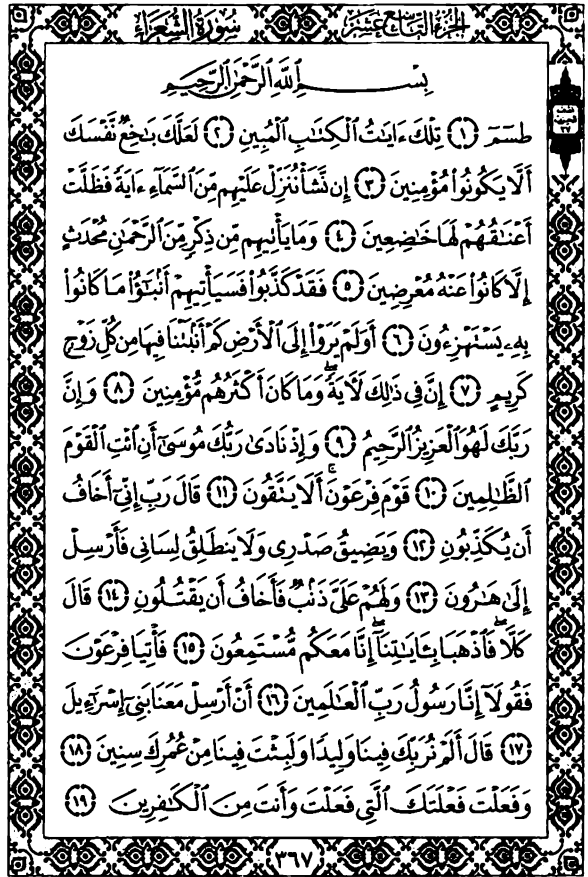 الجزء التاسع عشر سورة الشعراء
بِسْمِ اللَّهِ الرَّحْمَٰنِ الرَّحِيمِ
طسٓمٓ ١ تِلْكَ ءَايَٰتُ الْكِتَٰبِ الْمُبِينِ ٢ لَعَلَّكَ بَٰخِعٌ نَّفْسَكَ
أَلَّا يَكُونُوا۟ مُؤْمِنِينَ ٣ إِن نَّشَأْ نُنَزِّلْ عَلَيْهِم مِّنَ السَّمَآءِ ءَايَةً فَظَلَّتْ
أَعْنَٰقُهُمْ لَهَا خَٰضِعِينَ ٤ وَمَا يَأْتِيهِم مِّن ذِكْرٍ مِّنَ الرَّحْمَٰنِ مُحْدَثٍ
إِلَّا كَانُوا۟ عَنْهُ مُعْرِضِينَ ٥ فَقَدْ كَذَّبُوا۟ فَسَيَأْتِيهِمْ أَنۢبَٰٓؤُا۟ مَا كَانُوا۟
بِهِۦ يَسْتَهْزِءُونَ ٦ أَوَلَمْ يَرَوْا۟ إِلَى الْأَرْضِ كَمْ أَنۢبَتْنَا فِيهَا مِن كُلِّ زَوْجٍ
كَرِيمٍ ٧ إِنَّ فِى ذَٰلِكَ لَءَايَةً ۖ وَمَا كَانَ أَكْثَرُهُم مُّؤْمِنِينَ ٨ وَإِنَّ
رَبَّكَ لَهُوَ الْعَزِيزُ الرَّحِيمُ ٩ وَإِذْ نَادَىٰ رَبُّكَ مُوسَىٰٓ أَنِ ائْتِ الْقَوْمَ
الظَّٰلِمِينَ ١٠ قَوْمَ فِرْعَوْنَ ۚ أَلَا يَتَّقُونَ ١١ قَالَ رَبِّ إِنِّىٓ أَخَافُ
أَن يُكَذِّبُونِ ١٢ وَيَضِيقُ صَدْرِى وَلَا يَنطَلِقُ لِسَانِى فَأَرْسِلْ
إِلَىٰ هَٰرُونَ ١٣ وَلَهُمْ عَلَىَّ ذَنۢبٌ فَأَخَافُ أَن يَقْتُلُونِ ١٤ قَالَ
كَلَّا ۖ فَاذْهَبَا بِـَٔايَٰتِنَآ ۖ إِنَّا مَعَكُم مُّسْتَمِعُونَ ١٥ فَأْتِيَا فِرْعَوْنَ
فَقُولَآ إِنَّا رَسُولُ رَبِّ الْعَٰلَمِينَ ١٦ أَنْ أَرْسِلْ مَعَنَا بَنِىٓ إِسْرَٰٓءِيلَ
١٧ قَالَ أَلَمْ نُرَبِّكَ فِينَا وَلِيدًا وَلَبِثْتَ فِينَا مِنْ عُمُرِكَ سِنِينَ ١٨
وَفَعَلْتَ فَعْلَتَكَ الَّتِى فَعَلْتَ وَأَنتَ مِنَ الْكَٰفِرِينَ ١٩
٣٦٧